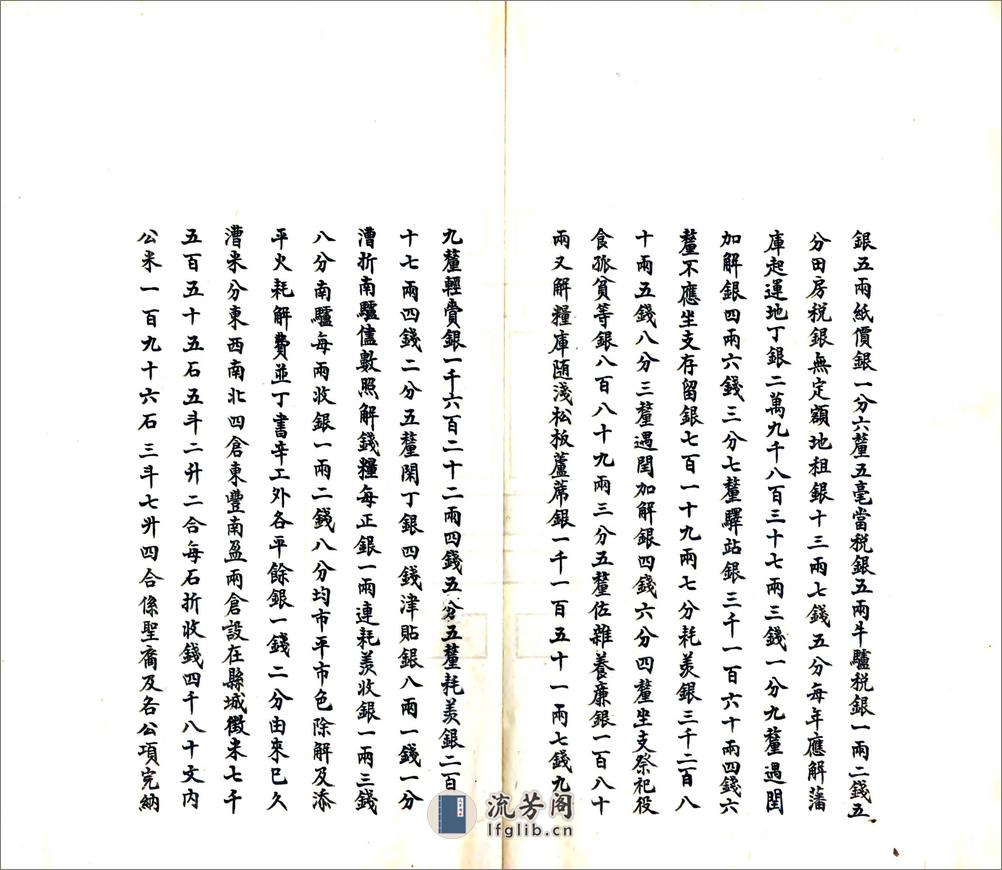 銀五兩紙價銀一分六釐五毫當税銀五兩牛驢税銀一兩二錢五
分田房税銀無定額地租銀十三兩七錢五分每年應解藩
庫起運地丁銀二萬九千八百三十七兩三錢一分九釐遇閏
加解銀四兩六錢三分七釐驛站銀三千一百六十兩四錢六
釐不應坐支存留銀七百一十九兩七分耗羨銀三千二百八
十兩五錢八分三釐遇閏加解銀四錢六分四釐坐支祭祀役
食孤貧等銀八百八十九兩三分五釐佐雜養廉銀一百八十
兩又解糧庫随淺松板蘆蓆銀一千一百五十一兩七錢九
九釐輕賫銀一千六百二十二兩四錢五分五釐耗羨銀二百
十七兩四錢二分五釐閑丁銀四錢津貼銀八兩一錢一分
漕折南驢儘數照解錢糧每正銀一兩連耗羨收銀一兩三錢
八分南驢每兩收銀一兩二錢八分均市平市色除解及添
平火耗解費並丁書辛工外各平餘銀一錢二分由來已久
漕米分東西南北四倉東豐南盈兩倉設在縣城徵米七千
五百五十五石五斗二升二合每石折收錢四千八十文内
公米一百九十六石三斗七升四合係聖裔及各公項完納
流芳阁
lfglib.cn